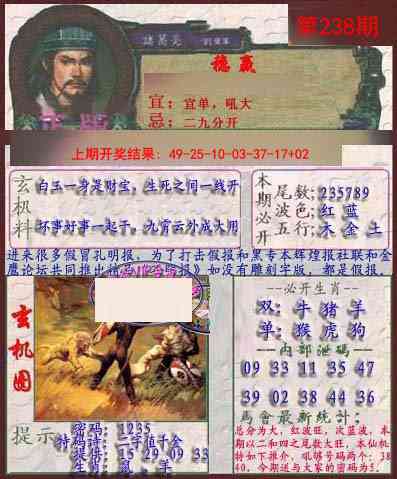 第238期
諸葛亮
劉備軍
稳赢
宜：宜单，吼大
忌：二九分开
上期开奖结果：49-25-10-03-37-17+02
玄机料
白玉一身是财宝，生死之间一线开
坏事好事一起干，九霄云外成大用
本期必开
尾数：235789
波色：红 蓝
五行：木 金 土
进来很多假冒孔明报，为了打击假报和黑专本辉煌报社联和金
鹰论坛共同推出精写《孔明报》如没有雕刻字版，都是假报．
玄机图
--必开生肖--
双：牛 猪 羊
单：猴 虎 狗
--内部泄码--
09 33 11 35 47
39 02 38 44 36
馬會最新統計：
总分为大，红波旺，次蓝波，本
期以二和四之尾数大旺，本仙机
特如下推介，吼够号码两个：38
40，今期送与大家的密码为5．
提示
密码：1235
特码诗：二字值千金
提供：15 29 09 33
生肖：鼠 羊